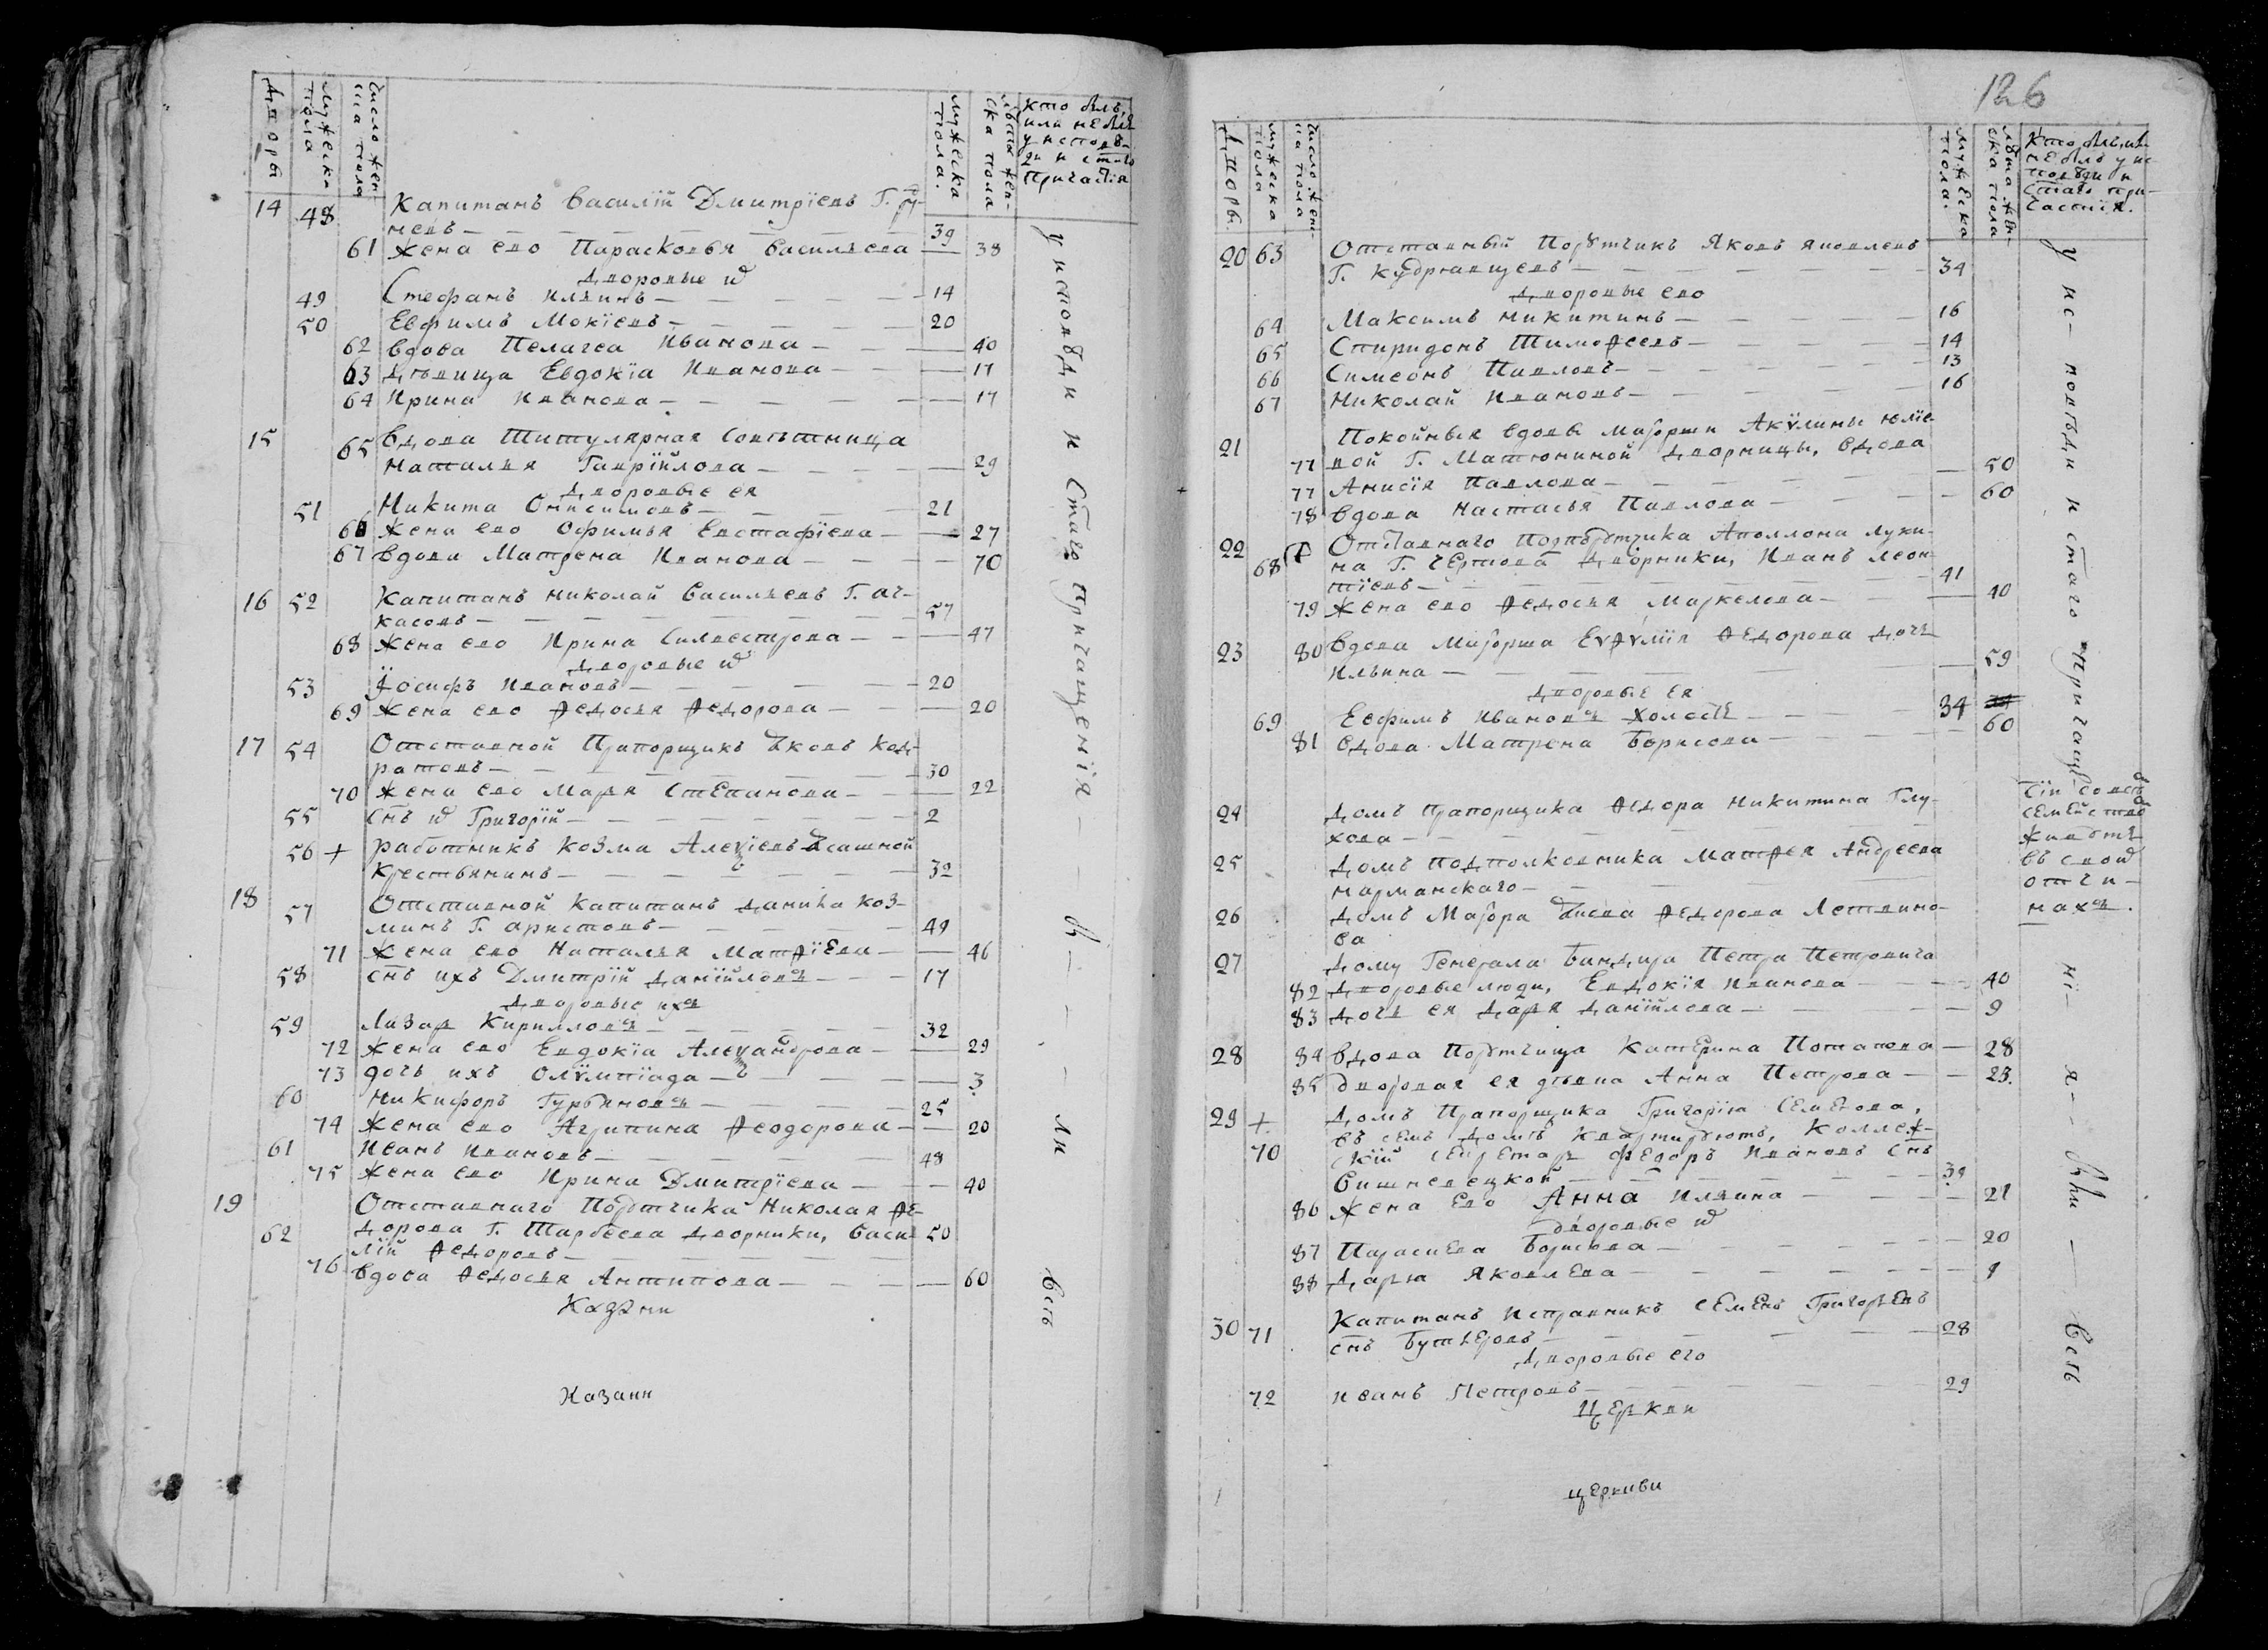 Дворы
мужеска пола
Число женска пола
мужеска пола.
лѣта женска пола
кто былъ,
или не былъ
у исповѣ-
ди и стаго
причастія
14 48 Капитанъ Василій Дмитріевъ Г.
невъ — 39
61 жена ево Парасковья Васильева — 38
Дворовые ихъ
49 Стефанъ Ильинъ — 14
50 Евфимъ Мокіевъ — 20
62 вдова Пелагея Иванова — 40
63 Дѣвица Евдокіа Иванова — 17
64 Ирина Иванова — 17
15 65 вдова Титулярная Совѣтница
Наталья Гавріилова — 29
Дворовые ея
51 Никита Онисимовъ — 21
66 жена ево Офимья Евстафіева — 27
67 вдова Матрена Иванова — 70
16 52 Капитанъ Николай Васильевъ Г. Ач-
касовъ — 57
68 жена ево Ирина Силвестрова — 47
Дворовые ихъ
53 Іосифъ Ивановъ — 20
69 жена ево Ѳедосья Ѳедорова — 20
17 54 Отставной Прапорщикъ Яковъ Кад-
ратовъ — 30
70 жена ево Марья Степанова — 22
55 снъ ихъ Григорій — 2
56 + работникъ Козма Алеѯіевъ Ясашной
Крестьянинъ — 32
18 57 Отставной Капитанъ Данила Коз-
минъ Г. Аристовъ — 49
71 жена ево Наталья Матѳіева — 46
58 снъ ихъ Дмитрій Даніиловъ — 17
Дворовые ихъ
59 Лазарь Кирилловъ — 32
72 жена ево Евдокіа Алеѯандрова — 29
73 дочь ихъ Олѵмпіада — 3
60 Никифоръ Гурьяновъ — 25
74 жена ево Агрипина Ѳеодорова — 20
61 Иванъ Ивановъ — 48
75 жена ево Ирина Дмитріева — 40
19 Отставнаго Порутчика Николая Ѳе-
62 дорова Г. Тарбеева дворники, Васи- 50
лій Ѳедоровъ —
76 вдова Ѳедосья Антипова — 60
Казани
Казани
у исповѣди и стаго причащенія —
бы — ли
весь
126
Дворы
мужеска пола
Число женска пола
мужеска пола.
лѣта женска пола
Кто былъ, или
не былъ у ис-
повѣди и
стаго при-
частія.
20 63 Отставный Порутчикъ Яковъ Яковлевъ
Г. Кудрявцевъ — 34
Дворовые ево
64 Максимъ Никитинъ — 16
65 Спиридонъ Тимоѳеевъ — 14
66 Симеонъ Павловъ — 13
67 Николай Ивановъ — 16
21 Покойныя вдовы маіорши Акѵлины Юлie-
77 вой Г. Матюниной Дворницы, вдова
77 Анисія Павлова — 50
78 вдова Настасья Павлова — 60
22 Отставнаго Подпорутчика Аполлона Луки-
68 + на Г. Чертова Дворники, Иванъ Леон-
тіевъ — 41
79 жена ево Ѳедосья Маркелова — 40
23 80 вдова Маіорша Еѵѳѵмія Ѳедорова дочь
Ильина — 59
Дворовые ея
69 Евфимъ Ивановъ холостъ — 34
81 вдова Матрена Борисова — 60
24 Домъ Прапорщика Ѳедора Никитина Глу-
хова —
25 Домъ Подполковника Матѳея Андреева
Нарманскаго —
26 Домъ Маіора Ѳедорова Лествино-
ва
27 Дому Генерала Петра Петровича
82 Дворовые люди, Евдокія Иванова — 40
83 дочь ея Дарья Даніилова — 9
28 84 вдова Порутчица Катерина Потапова — 28
85 дворовая ея дѣвка Анна Петрова — 23.
29 + Домъ Прапорщика Григорья Семенова,
въ семъ домѣ квартируютъ, Коллеж-
70 скій Секретарь Ѳедоръ Ивановъ снъ
Вишневецкой — 39
86 жена Ево Анна Ильина — 21
Дворовые ихъ
87 Параскева Борисова — 20
88 Дарья Яковлева — 9
30 71 Капитанъ Исправникъ Семенъ Григорьевъ
снъ Бутлеровъ — 28
Дворовые его
72 Иванъ Петровъ — 29
Церкви
церкви
у ис- повѣди и стаго причаще-
Сіи со всѣмъ
семействомъ
живутъ
въ своихъ
отчи-
нахъ.
ні- я- бы- ли — весь